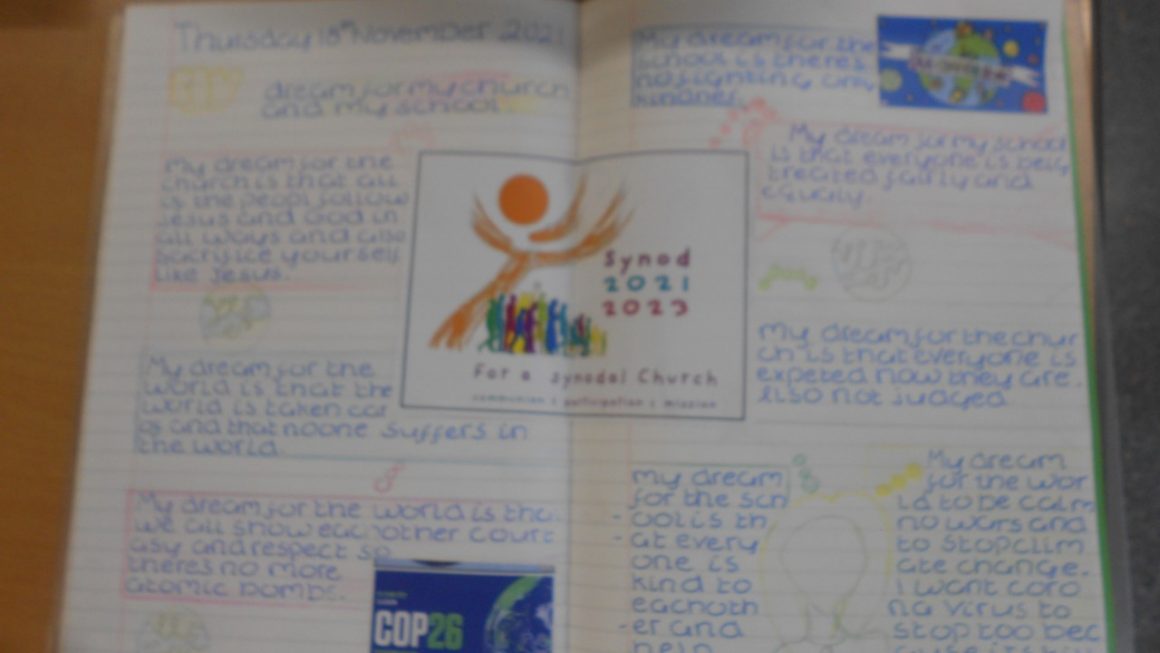 Thursday 18th November 2021
My
dream for my church
and my school
My dream for the
church is that all
is the peopl follow
Jesus and God in
all ways and also
sacrifice yourself
like Jesus.
My dream for the
world is that the
world is taken car
of and that noone suffers in
the world.
My dream for the world is tha
we all show eachother court
asy and respect so
theres no more
atomic bombs.
COP26
Synod
2021
2023
For a synodal Church
communion | participation | mission
My dream for the
school is theres
no fighting only
kindnes.
My dream for my school
is that everyone is being
treated fairly and
equally.
My dream for the chur
ch is that everyone is
expeted how they are.
Also not judged
My dream
for the sch
- ool is th
- at every
one is
kind to
eachoth
- er and
help
My dream
for the wor
ld to be calm
no wars and
to stop clim
ate change.
I want coro
na virus to
stop too bec